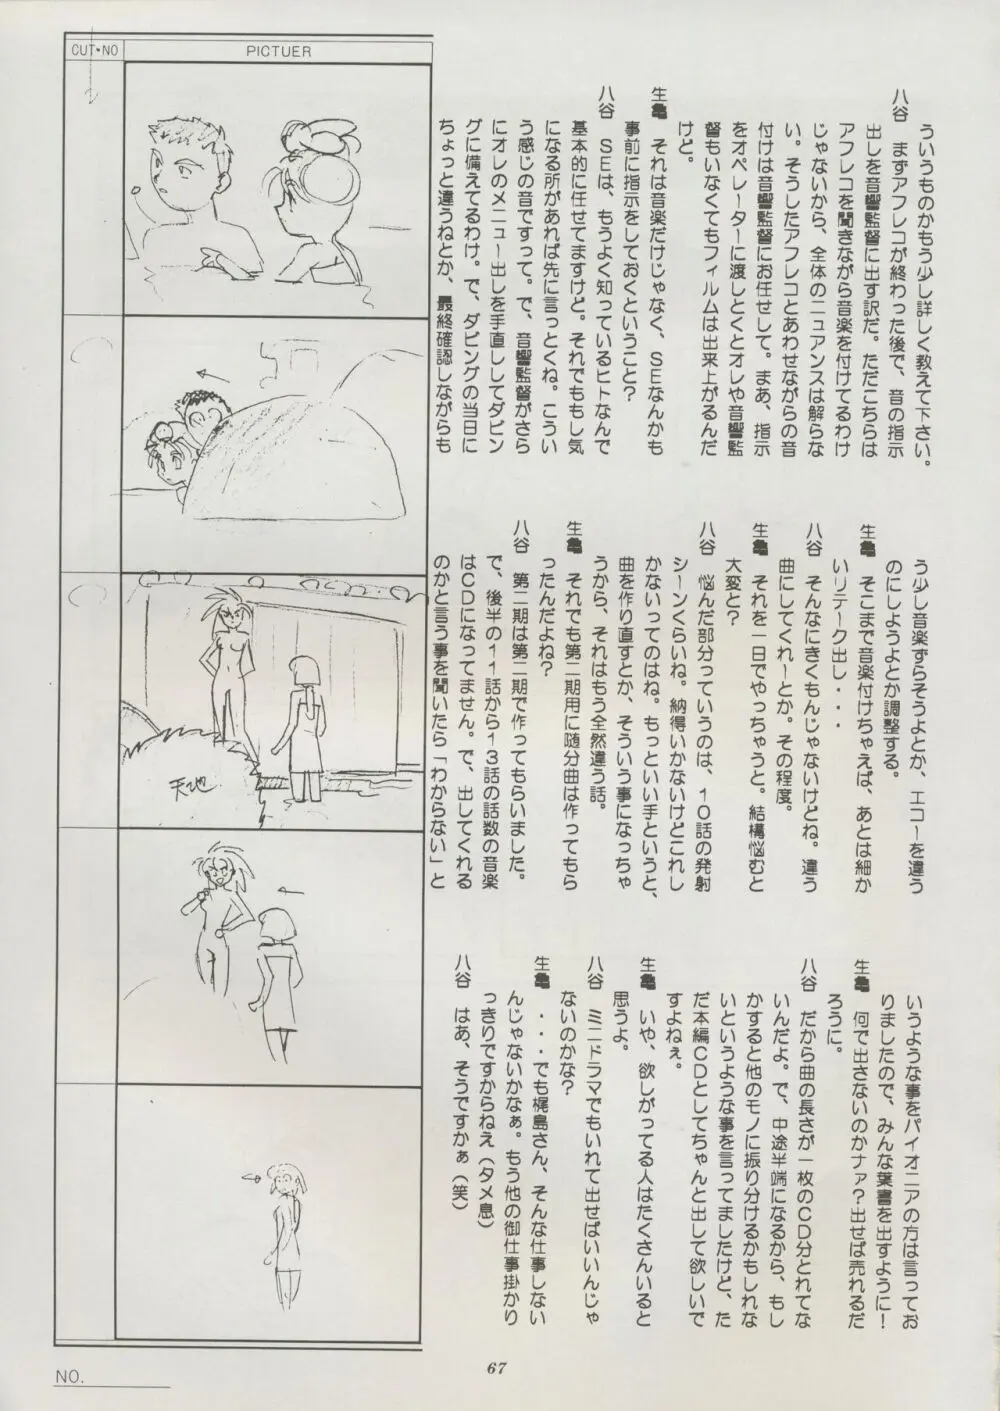 CUT・NO
PICTUER
ういうものかもう少し詳しく教えて下さい。
八谷　まずアフレコが終わった後で、音の指示
出しを音響監督に出す訳だ。ただこちらは
アフレコを聞きながら音楽を付けてるわけ
じゃないから、全体のニュアンスは解らな
い。そうしたアフレコとあわせながらの音
付けは音響監督にお任せして。まあ、指示
をオペレーターに渡しとくとオレや音響監
督もいなくてもフィルムは出来上がるんだ
けど。
生亀　それは音楽だけじゃなく、ＳＥなんかも
事前に指示をしておくということ？
八谷　ＳＥは、もうよく知っているヒトなんで
基本的に任せてますけど。それでももし気
になる所があれば先に言っとくね。こうい
う感じの音ですって。で、音響監督がさら
にオレのメニュー出しを手直ししてダビン
グに備えてるわけ。で、ダビングの当日に
ちょっと違うねとか、最終確認しながらも
う少し音楽ずらそうよとか、エコーを違う
のにしようよとか調整する。
生亀　そこまで音楽付けちゃえば、あとは細か
いリテーク出し・・・
八谷　そんなにきくもんじゃないけどね。違う
曲にしてくれーとか。その程度。
生亀　それを一日でやっちゃうと。結構悩むと
大変と？
八谷　悩んだ部分っていうのは、１０話の発射
シーンくらいね。納得いかないけどこれし
かないってのはね。もっといい手というと、
曲を作り直すとか、そういう事になっちゃ
うから、それはもう全然違う話。
生亀　それでも第二期用に随分曲は作ってもら
ったんだよね？
八谷　第二期は第二期で作ってもらいました。
で、後半の１１話から１３話の話数の音楽
はＣＤになってません。で、出してくれる
のかと言う事を聞いたら「わからない」と
いうような事をパイオニアの方は言ってお
りましたので、みんな葉書を出すように！
生亀　何で出さないのかナァ？出せば売れるだ
ろうに。
八谷　だから曲の長さが一枚のＣＤ分とれてな
いんだよ。で、中途半端になるから、もし
かすると他のモノに振り分けるかもしれな
いというような事を言ってましたけど、た
だ本編ＣＤとしてちゃんと出して欲しいで
すよねぇ。
生亀　いや、欲しがってる人はたくさんいると
思うよ。
八谷　ミニドラマでもいれて出せばいいんじゃ
ないのかな？
生亀　・・・でも梶島さん、そんな仕事しない
んじゃないかなぁ。もう他の御仕事掛かり
っきりですからねえ（タメ息）
八谷　はあ、そうですかぁ（笑）
天地
67
NO.